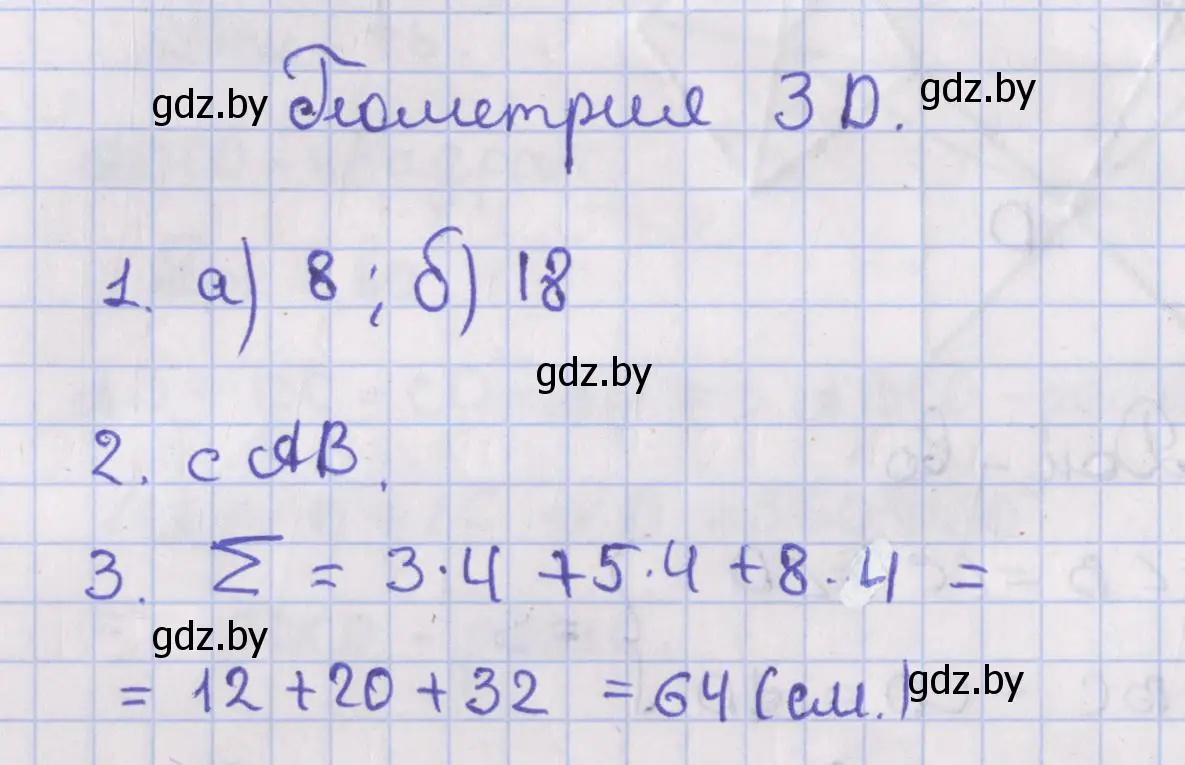 gdz.by Геометрия 3D. gdz.by
1. а) 8 ; б) 18
gdz.by
2. с АВ.
3. Σ = 3·4 + 5·4 + 8·4 =
gdz.by
= 12 + 20 + 32 = 64 (см.) gdz.by